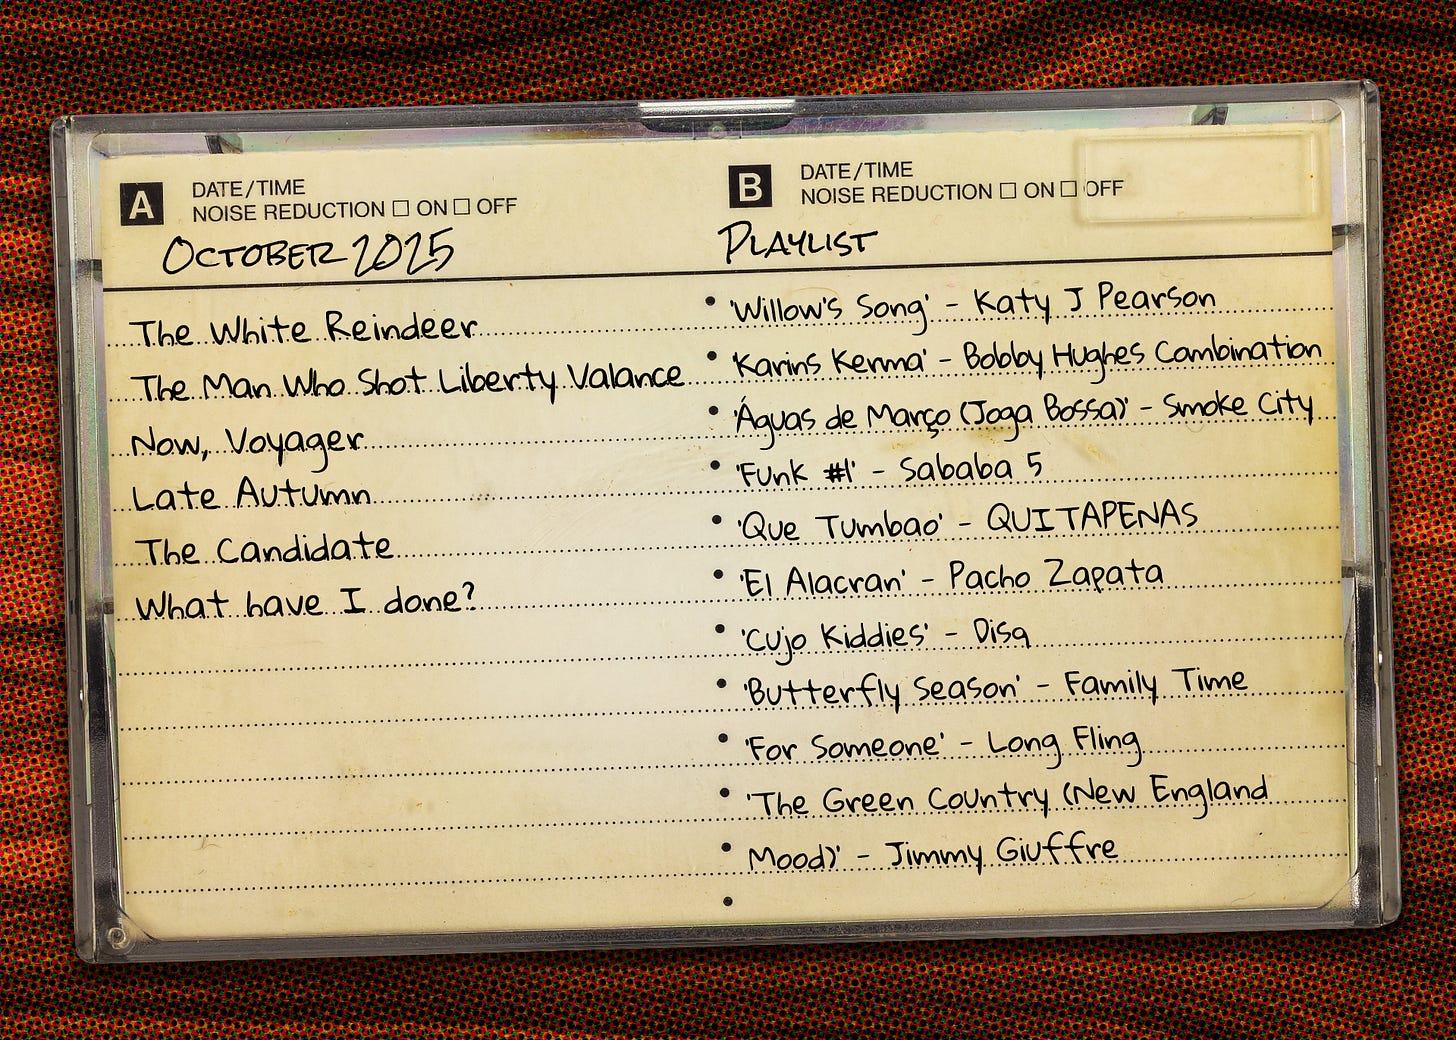 A DATE/TIME
NOISE REDUCTION ☐ ON ☐ OFF
OCTOBER 2025
The White Reindeer
The Man Who Shot Liberty Valance
Now, Voyager
Late Autumn
The Candidate
What have I done?
B DATE/TIME
NOISE REDUCTION ☐ ON ☐ OFF
PLAYLIST
• 'Willow's Song' - Katy J Pearson
• 'Karins Kerma' - Bobby Hughes Combination
• 'Águas de Março (Joga Bossa)' - Smoke City
• 'Funk #1' - Sababa 5
• 'Que Tumbao' - QUITAPENAS
• 'El Alacran' - Pacho Zapata
• 'Cujo Kiddies' - Disq
• 'Butterfly Season' - Family Time
• 'For Someone' - Long Fling
• 'The Green Country (New England
• Mood)' - Jimmy Giuffre
•